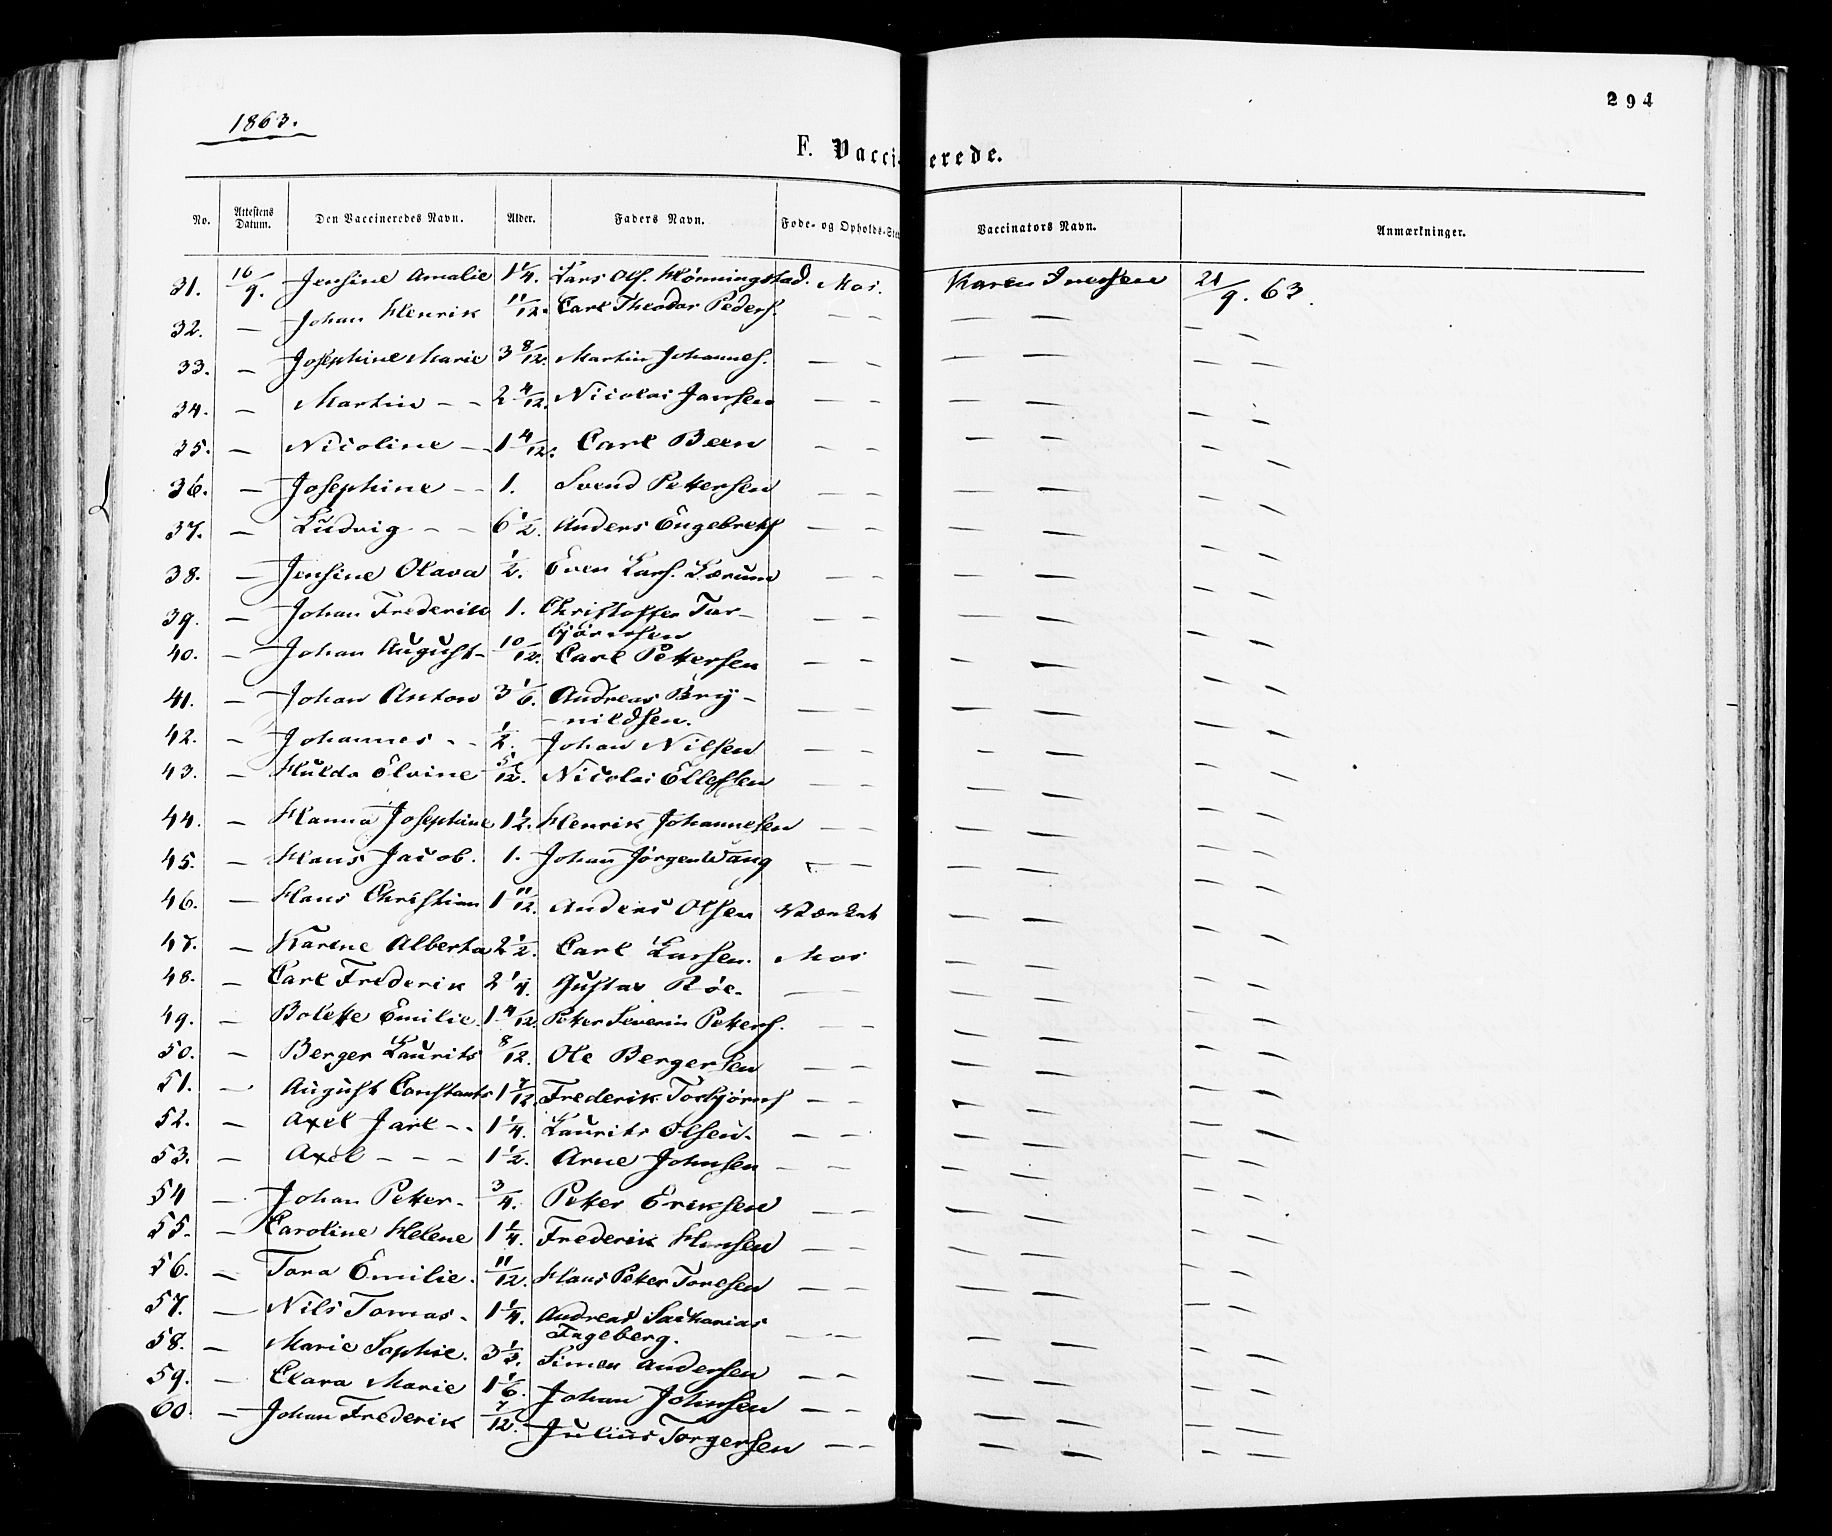 294
1863.
F. Vacci-erede.
No. Attestens Datum. Den Vaccineredes Navn. Alder. Faders Navn. Føde- og Opholds-Sted Vaccinators Navn. Anmærkninger.
31. 16/9. Jensine Amalie 1 1/4. Lars Ols. Hønningstad. Mos. Karen 21/9. 63.
32. — Johan Henrik 11/12. Carl Theodor Peders. — — — — — —
33. — Josephine Marie 3 8/12. Martin Johannes. — — — — — —
34. — Martin - - 2 4/12. Nicolai Jansen — — — — — —
35. — Nicoline - - 1 4/12. Carl Been — — — — — —
36. — Josephine - - 1. Svend Pettersen — — — — — —
37. — Ludvig - - 6 1/2. Anders Engebrets — — — — — —
38. — Jensine Olava 1/2. Even Lars. Lærum — — — — — —
39. — Johan Frederik 1. Christoffer Tor-
bjørnsen — — — —
40. — Johan August - 10/12. Carl Pettersen — — — — — —
41. — Johan Anton 3 1/6. Andreas Bry-
-nildsen. — — — — — —
42. — Johannes - - 1/2. Johan Nilsen — — — — — —
43. — Hulda Elvine 5/12. Nicolai Ellefsen — — — — — —
44. — Hanna Josephine 1 1/2. Henrik Johannesen — — — — — —
45. — Hans Jacob. 1. Johan Jørgen Wang — — — — — —
46. — Hans Christian 1 11/12. Anders Olsen — — — —
47. — Karine Alberta 2 1/2. Carl Larsen. Mos — — — —
48. — Carl Frederik 2 1/4. Gustav Röe. — — — — — —
49. — Bolette Emilie. 1 4/12. Petter Severin Petters. — — — — — —
50. — Berger Laurits 8/12. Ole Bergersen — — — — — —
51. — August Constants 1 7/12. Frederik Torbjørns — — — — — —
52. — Axel Jarl - - 1 1/4. Laurits Olsen. — — — — — —
53. — Axel - - - 1 1/2. Arne Johnsen — — — — — —
54 — Johan Petter - 3/4. Petter Eriksen — — — — — —
55. — Caroline Helene 1 1/4. Frederik Hansen — — — — — —
56. — Tora Emilie. 11/12. Hans Petter Toresen — — — — — —
57. — Nils Tomas - 1 1/4. Andreas Sackarias
Fageberg. — — — — — —
58. — Marie Sophie. 3 1/3. Simen Andersen — — — — — —
59. — Clara Marie 1 1/6. Johan Johnsen — — — — — —
60. — Johan Frederik 7/12. Julius Torgersen — — — — — —